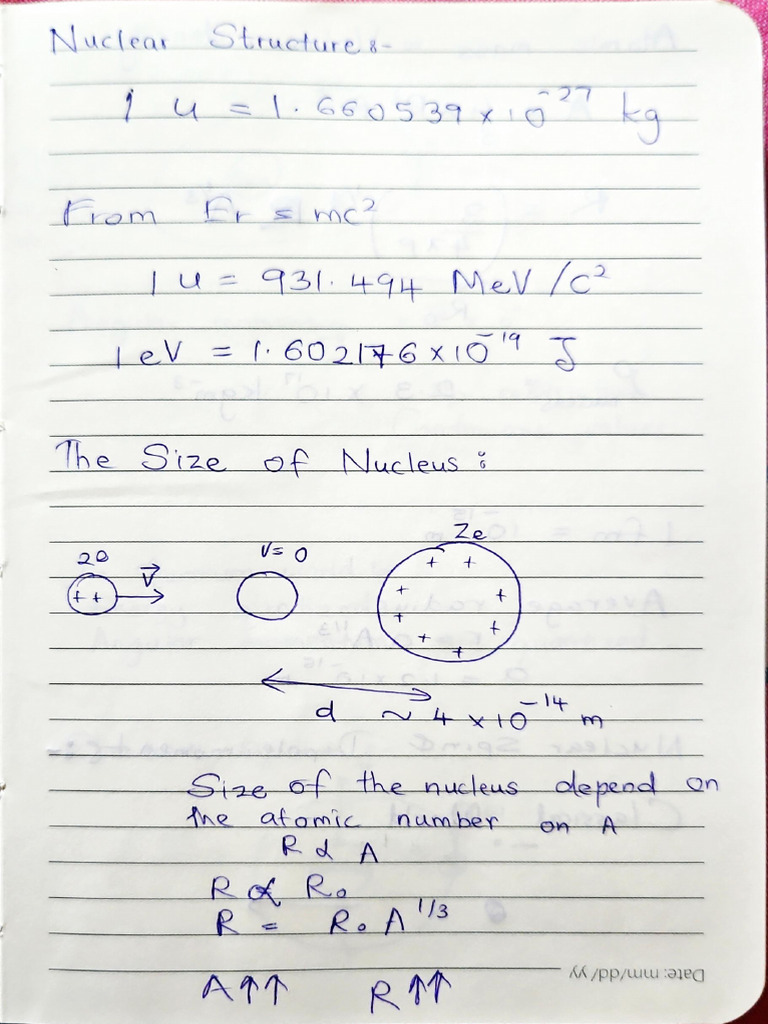 Nuclear Structure:-
1 u = 1.660539 × 10⁻²⁷ kg
From Er = mc²
1 u = 931.494 MeV/c²
1 eV = 1.602176 × 10⁻¹⁹ J
The Size of Nucleus :
2e V⃗ ++
V = 0
Ze + + + + + + + +
d ~ 4 × 10⁻¹⁴ m
Size of the nucleus depend on
the atomic number on A
R ∝ A
R ∝ R₀
R = R₀ A^1/3
A↑↑ R↑↑
Date: mm/dd/yy